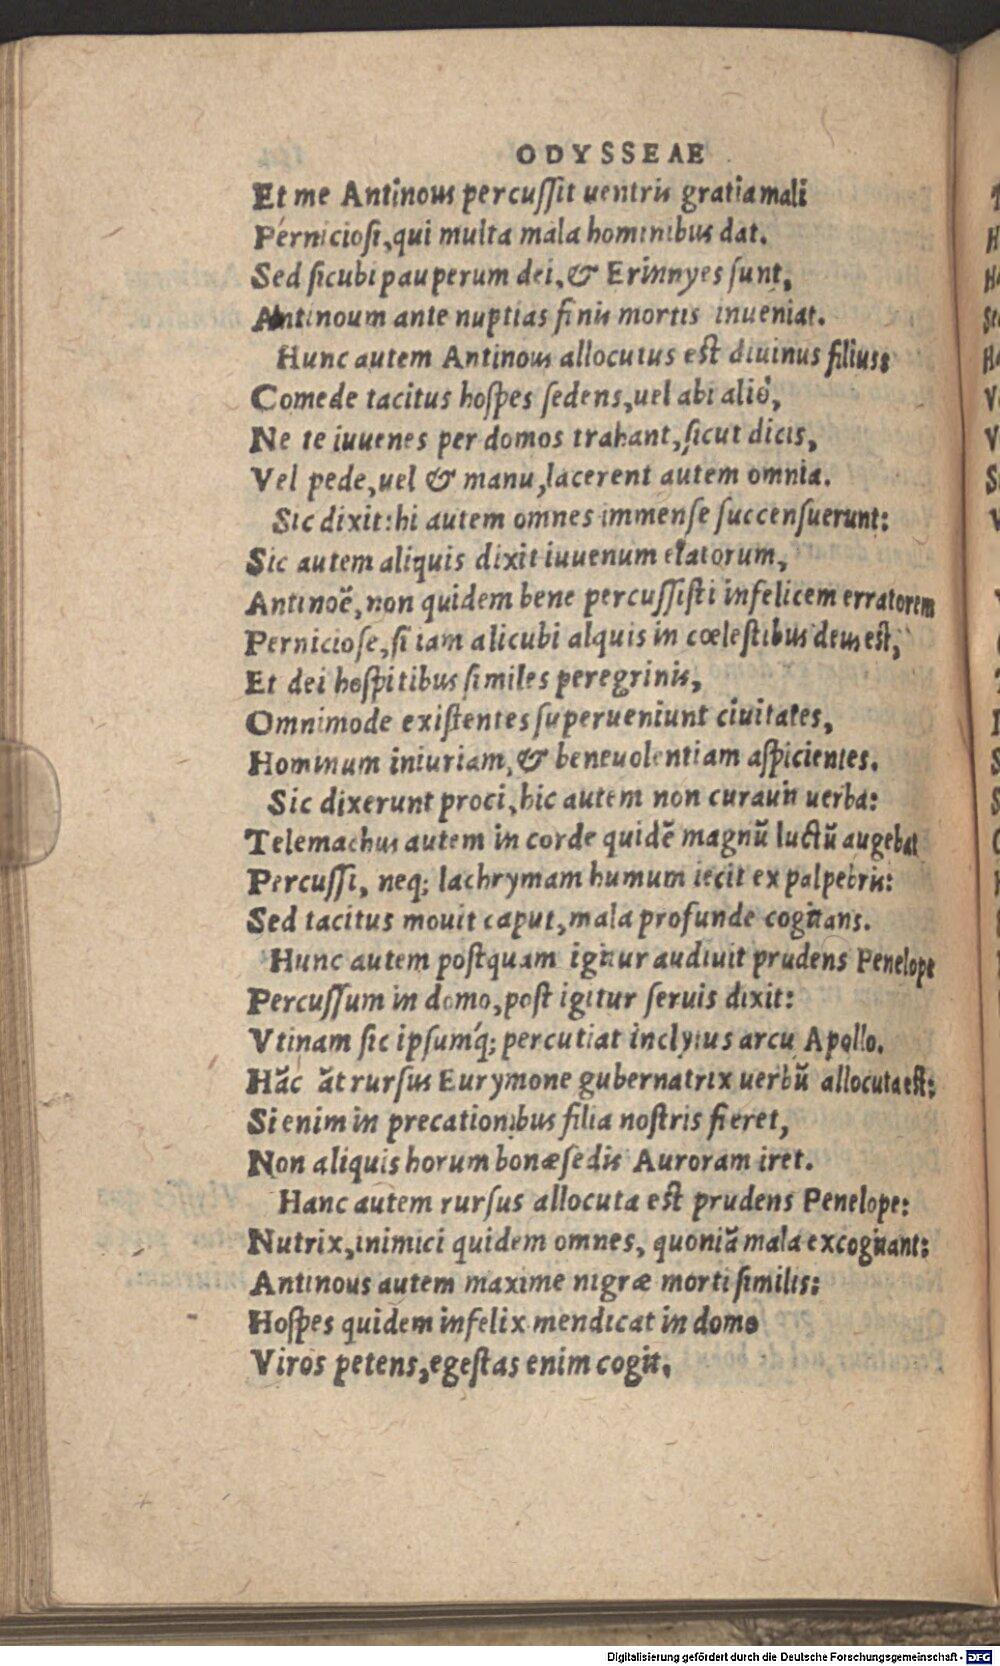 ODYSSEAE
Et me Antinous percussit uentris gratia mali
Perniciosi, qui multa mala hominibus dat.
Sed sicubi pauperum dei, & Erinnyes sunt,
Antinoum ante nuptias finis mortis inueniat.
Hunc autem Antinous allocutus est diuinus filius:
Comede tacitus hospes sedens, uel abi aliò,
Ne te iuuenes per domos trahant, sicut dicis,
Vel pede, uel & manu, lacerent autem omnia.
Sic dixit: hi autem omnes immense succensuerunt:
Sic autem aliquis dixit iuuenum elatorum,
Antinoë, non quidem bene percussisti infelicem erratorem
Perniciose, si iam alicubi alquis in cœlestibus deus est,
Et dei hospitibus similes peregrinis,
Omnimode existentes superueniunt ciuitates,
Hominum iniuriam, & beneuolentiam aspicientes.
Sic dixerunt proci, hic autem non curauit uerba:
Telemachus autem in corde quidē magnū luctū augebat
Percussi, neq; lachrymam humum iecit ex palpebris:
Sed tacitus mouit caput, mala profunde cogitans.
Hunc autem postquam igitur audiuit prudens Penelope
Percussum in domo, post igitur seruis dixit:
Vtinam sic ipsumq́; percutiat inclytus arcu Apollo.
Hāc āt rursus Eurymone gubernatrix uerbū allocuta est:
Si enim in precationibus filia nostris fieret,
Non aliquis horum bonæ sedis Auroram iret.
Hanc autem rursus allocuta est prudens Penelope:
Nutrix, inimici quidem omnes, quoniā mala excogitant:
Antinous autem maxime nigræ morti similis:
Hospes quidem infelix mendicat in domo
Viros petens, egestas enim cogit,
Digitalisierung gefördert durch die Deutsche Forschungsgemeinschaft - DFG